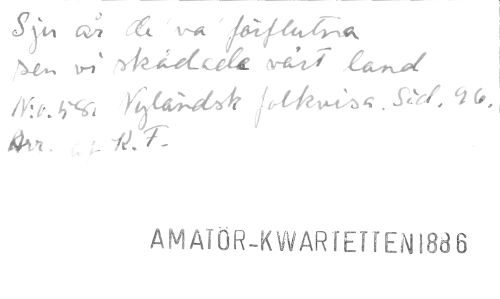 Sju år de va' förflutna
sen vi skådade vårt land
N:o. 58. Nyländsk folkvisa. Sid. 96.
Arr. af K. F.
AMATÖR-KWARTETTEN 1886